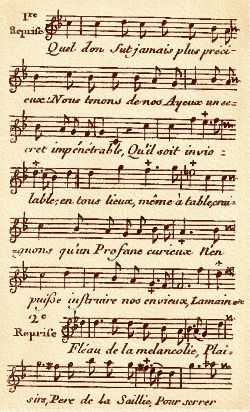 1re
Reprise
Quel don fut jamais plus préci-
eux: Nous tenons de nos Ayeux un se-
cret impénétrable, Qu'il soit invio-
lable; en tous lieux, même à table, crai-
gnons qu'un Profane curieux N'en
puisse instruire nos envieux, La main &c
2e
Reprise
Fléau de la melancolie, Plai-
sirs, Pere de la Saillie, Pour serrer